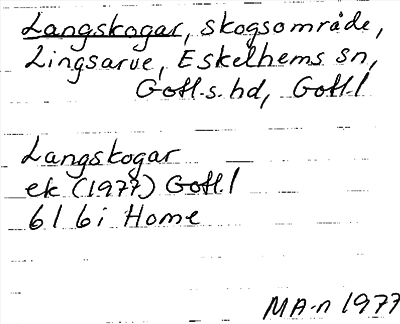 Langskogar, skogsområde,
Lingsarve, Eskelhems sn,
Gotl.s. hd, Gotl.l
Langskogar
ek (1977) Gotl.l
6 I 6i Home
MA-n 1977